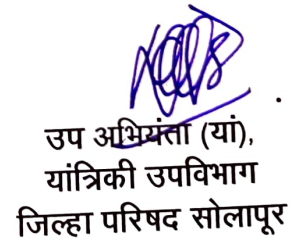 उप अभियंता (यां),
यांत्रिकी उपविभाग
जिल्हा परिषद सोलापूर